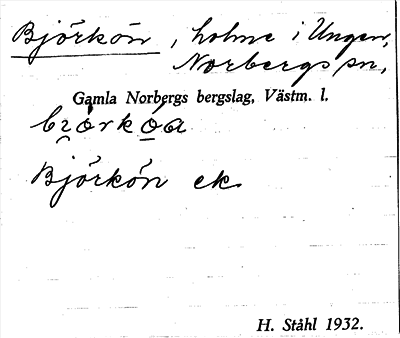 Björkön, holme i Ungen,
Norbergs sn,
Gamla Norbergs bergslag, Västm. l.
Björkön ek.
H. Ståhl 1932.